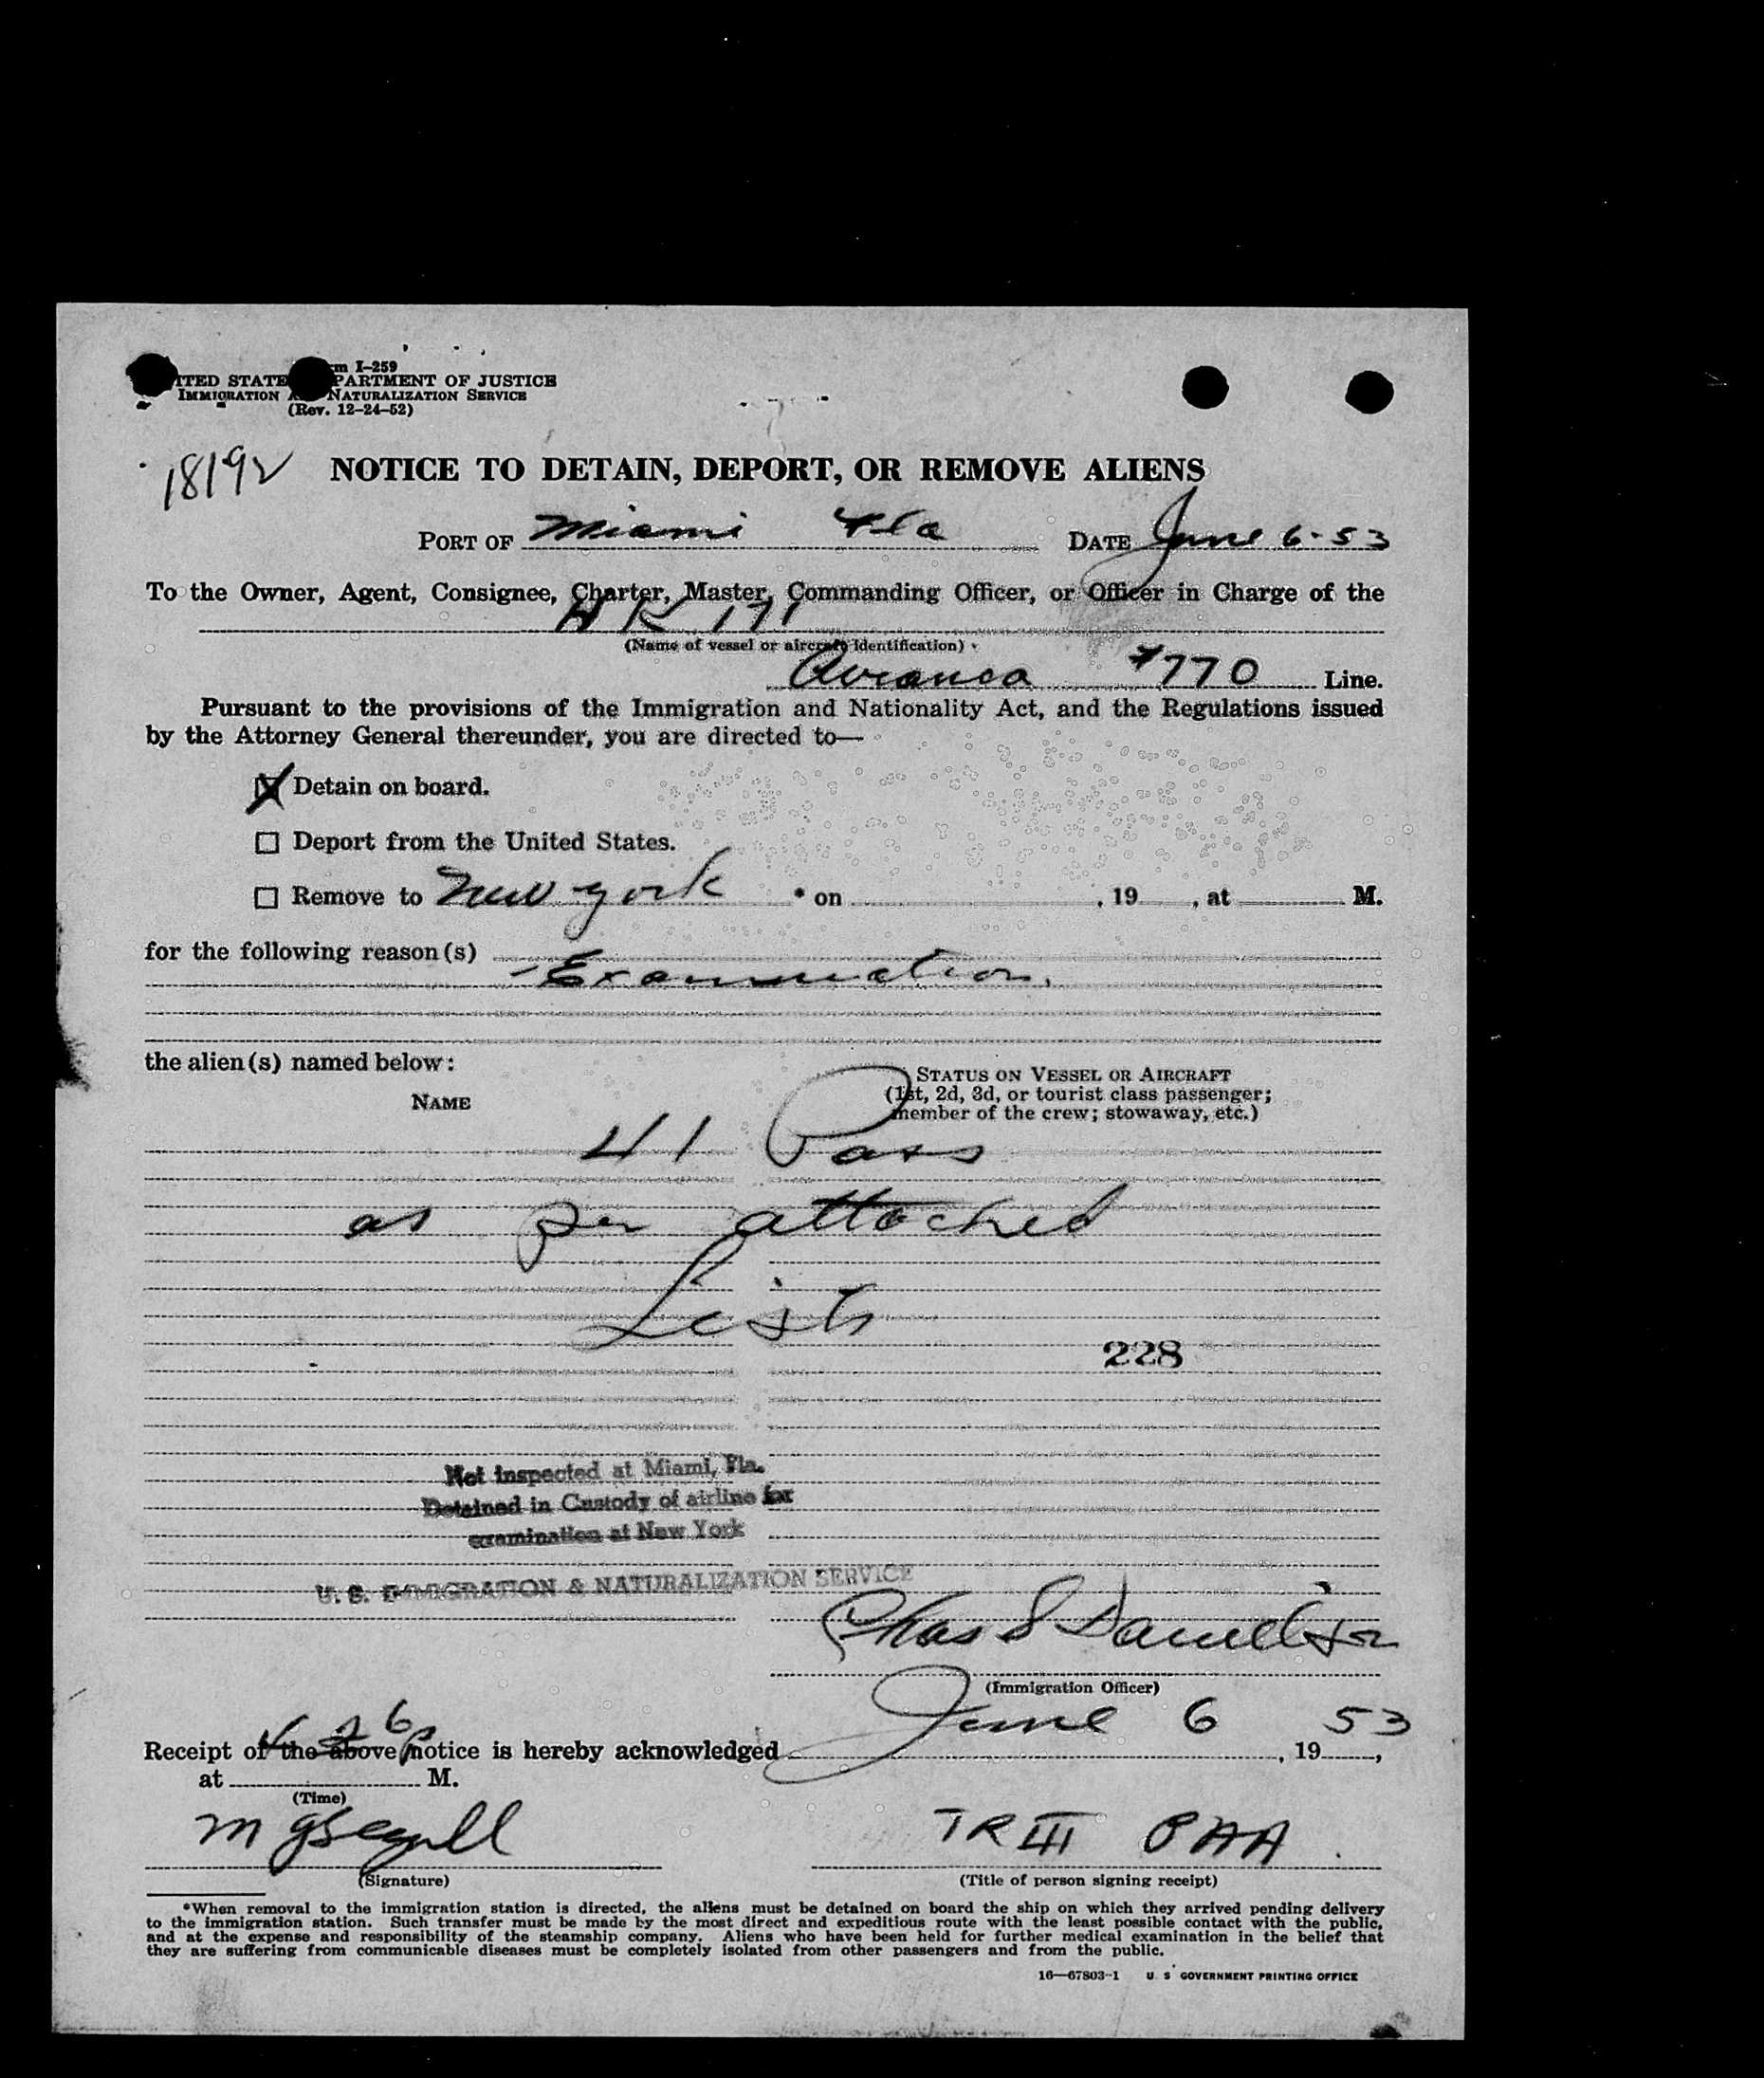 m I-259
ITED STATE PARTMENT OF JUSTICE
IMMIGRATION A NATURALIZATION SERVICE
(Rev. 12-24-52)
18192
NOTICE TO DETAIN, DEPORT, OR REMOVE ALIENS
PORT OF Miami Fla DATE June 6-53
To the Owner, Agent, Consignee, Charter, Master, Commanding Officer, or Officer in Charge of the
HK 171
(Name of vessel or aircraft identification)
Avianca #770 Line.
Pursuant to the provisions of the Immigration and Nationality Act, and the Regulations issued
by the Attorney General thereunder, you are directed to—
Detain on board.
Deport from the United States.
Remove to New York * on , 19 , at M.
for the following reason(s)
- Examination.
the alien(s) named below:
STATUS ON VESSEL OR AIRCRAFT
NAME (1st, 2d, 3d, or tourist class passenger;
member of the crew; stowaway, etc.)
41 Pass
as per attached
List
228
Not inspected at Miami, Fla.
Detained in Custody of airline for
examination at New York
U. S. IMMIGRATION & NATURALIZATION SERVICE
Chas S Danielson
(Immigration Officer)
June 6 53
Receipt of the above notice is hereby acknowledged , 19 ,
at M.
(Time)
TR III PAA
(Signature) (Title of person signing receipt)
*When removal to the immigration station is directed, the aliens must be detained on board the ship on which they arrived pending delivery
to the immigration station. Such transfer must be made by the most direct and expeditious route with the least possible contact with the public,
and at the expense and responsibility of the steamship company. Aliens who have been held for further medical examination in the belief that
they are suffering from communicable diseases must be completely isolated from other passengers and from the public.
16—67803-1 U. S GOVERNMENT PRINTING OFFICE